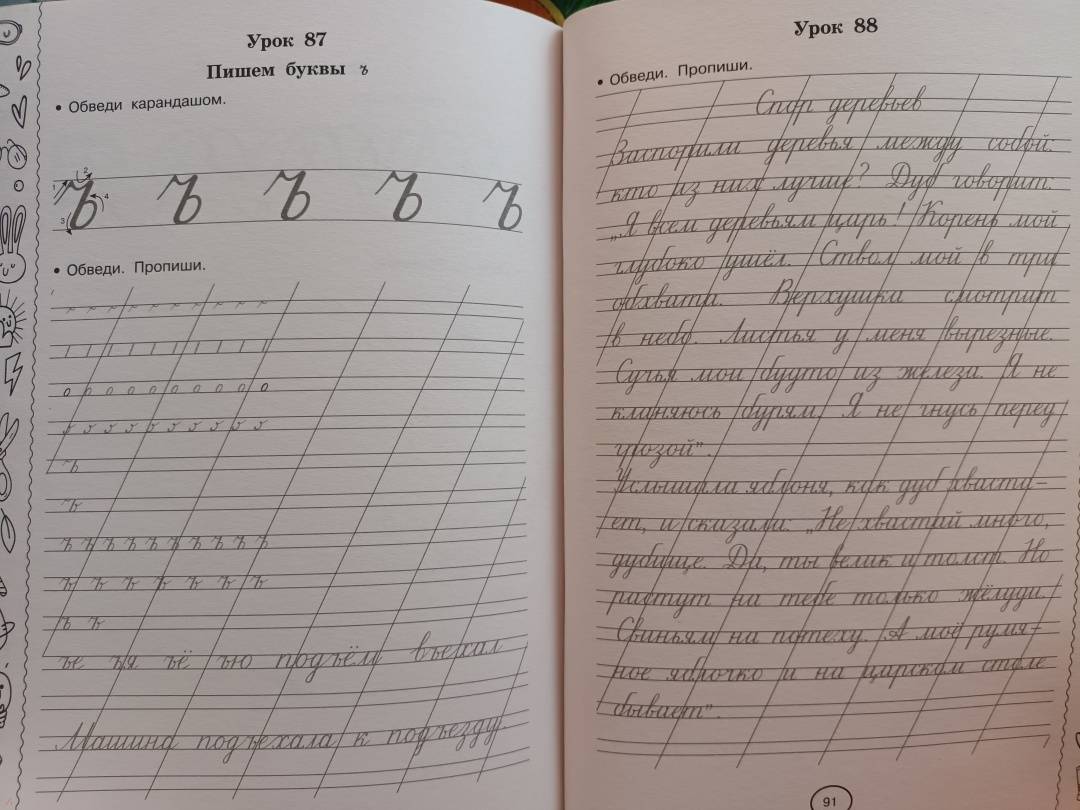 Урок 87
Пишем буквы ъ
• Обведи карандашом.
1 2 3 4
ъ ъ ъ ъ ъ
• Обведи. Пропиши.
о о о о о о о о о о
ъ
ъ
ъ ъ ъ ъ ъ ъ ъ ъ ъ ъ
ъ ъ ъ ъ ъ ъ ъ
ъ ъ
ъе ъя ъё ъю подъём въехал
Машина подъехала к подъезду.
Урок 88
• Обведи. Пропиши.
Спор деревьев
Заспорили деревья между собой:
кто из них лучше? Дуб говорит:
„Я всем деревьям царь! Корень мой
глубоко ушёл. Ствол мой в три
обхвата. Верхушка смотрит
в небо. Листья у меня вырезные.
Сучья мои будто из железа. Я не
кланяюсь бурям, Я не гнусь перед
грозой".
Услышала яблоня, как дуб хваста-
ет, и сказала: „Не хвастай много,
дубище. Да, ты велик и толст. Но
растут на тебе только жёлуди.
Свиньям на потеху. А моё румя-
ное яблочко и на царском столе
бывает".
91